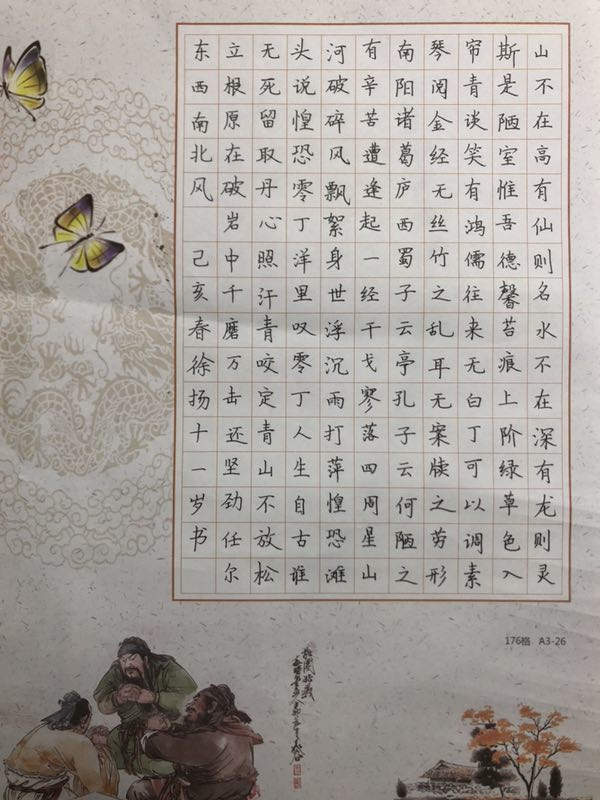 山不在高有仙则名水不在深有龙则灵
斯是陋室惟吾德馨苔痕上阶绿草色入
帘青谈笑有鸿儒往来无白丁可以调素
琴阅金经无丝竹之乱耳无案牍之劳形
南阳诸葛庐西蜀子云亭孔子云何陋之
有辛苦遭逢起一经干戈寥落四周星山
河破碎风飘絮身世浮沉雨打萍惶恐滩
头说惶恐零丁洋里叹零丁人生自古谁
无死留取丹心照汗青咬定青山不放松
立根原在破岩中千磨万击还坚劲任尔
东西南北风 己亥春徐扬十一岁书
176格 A3-26